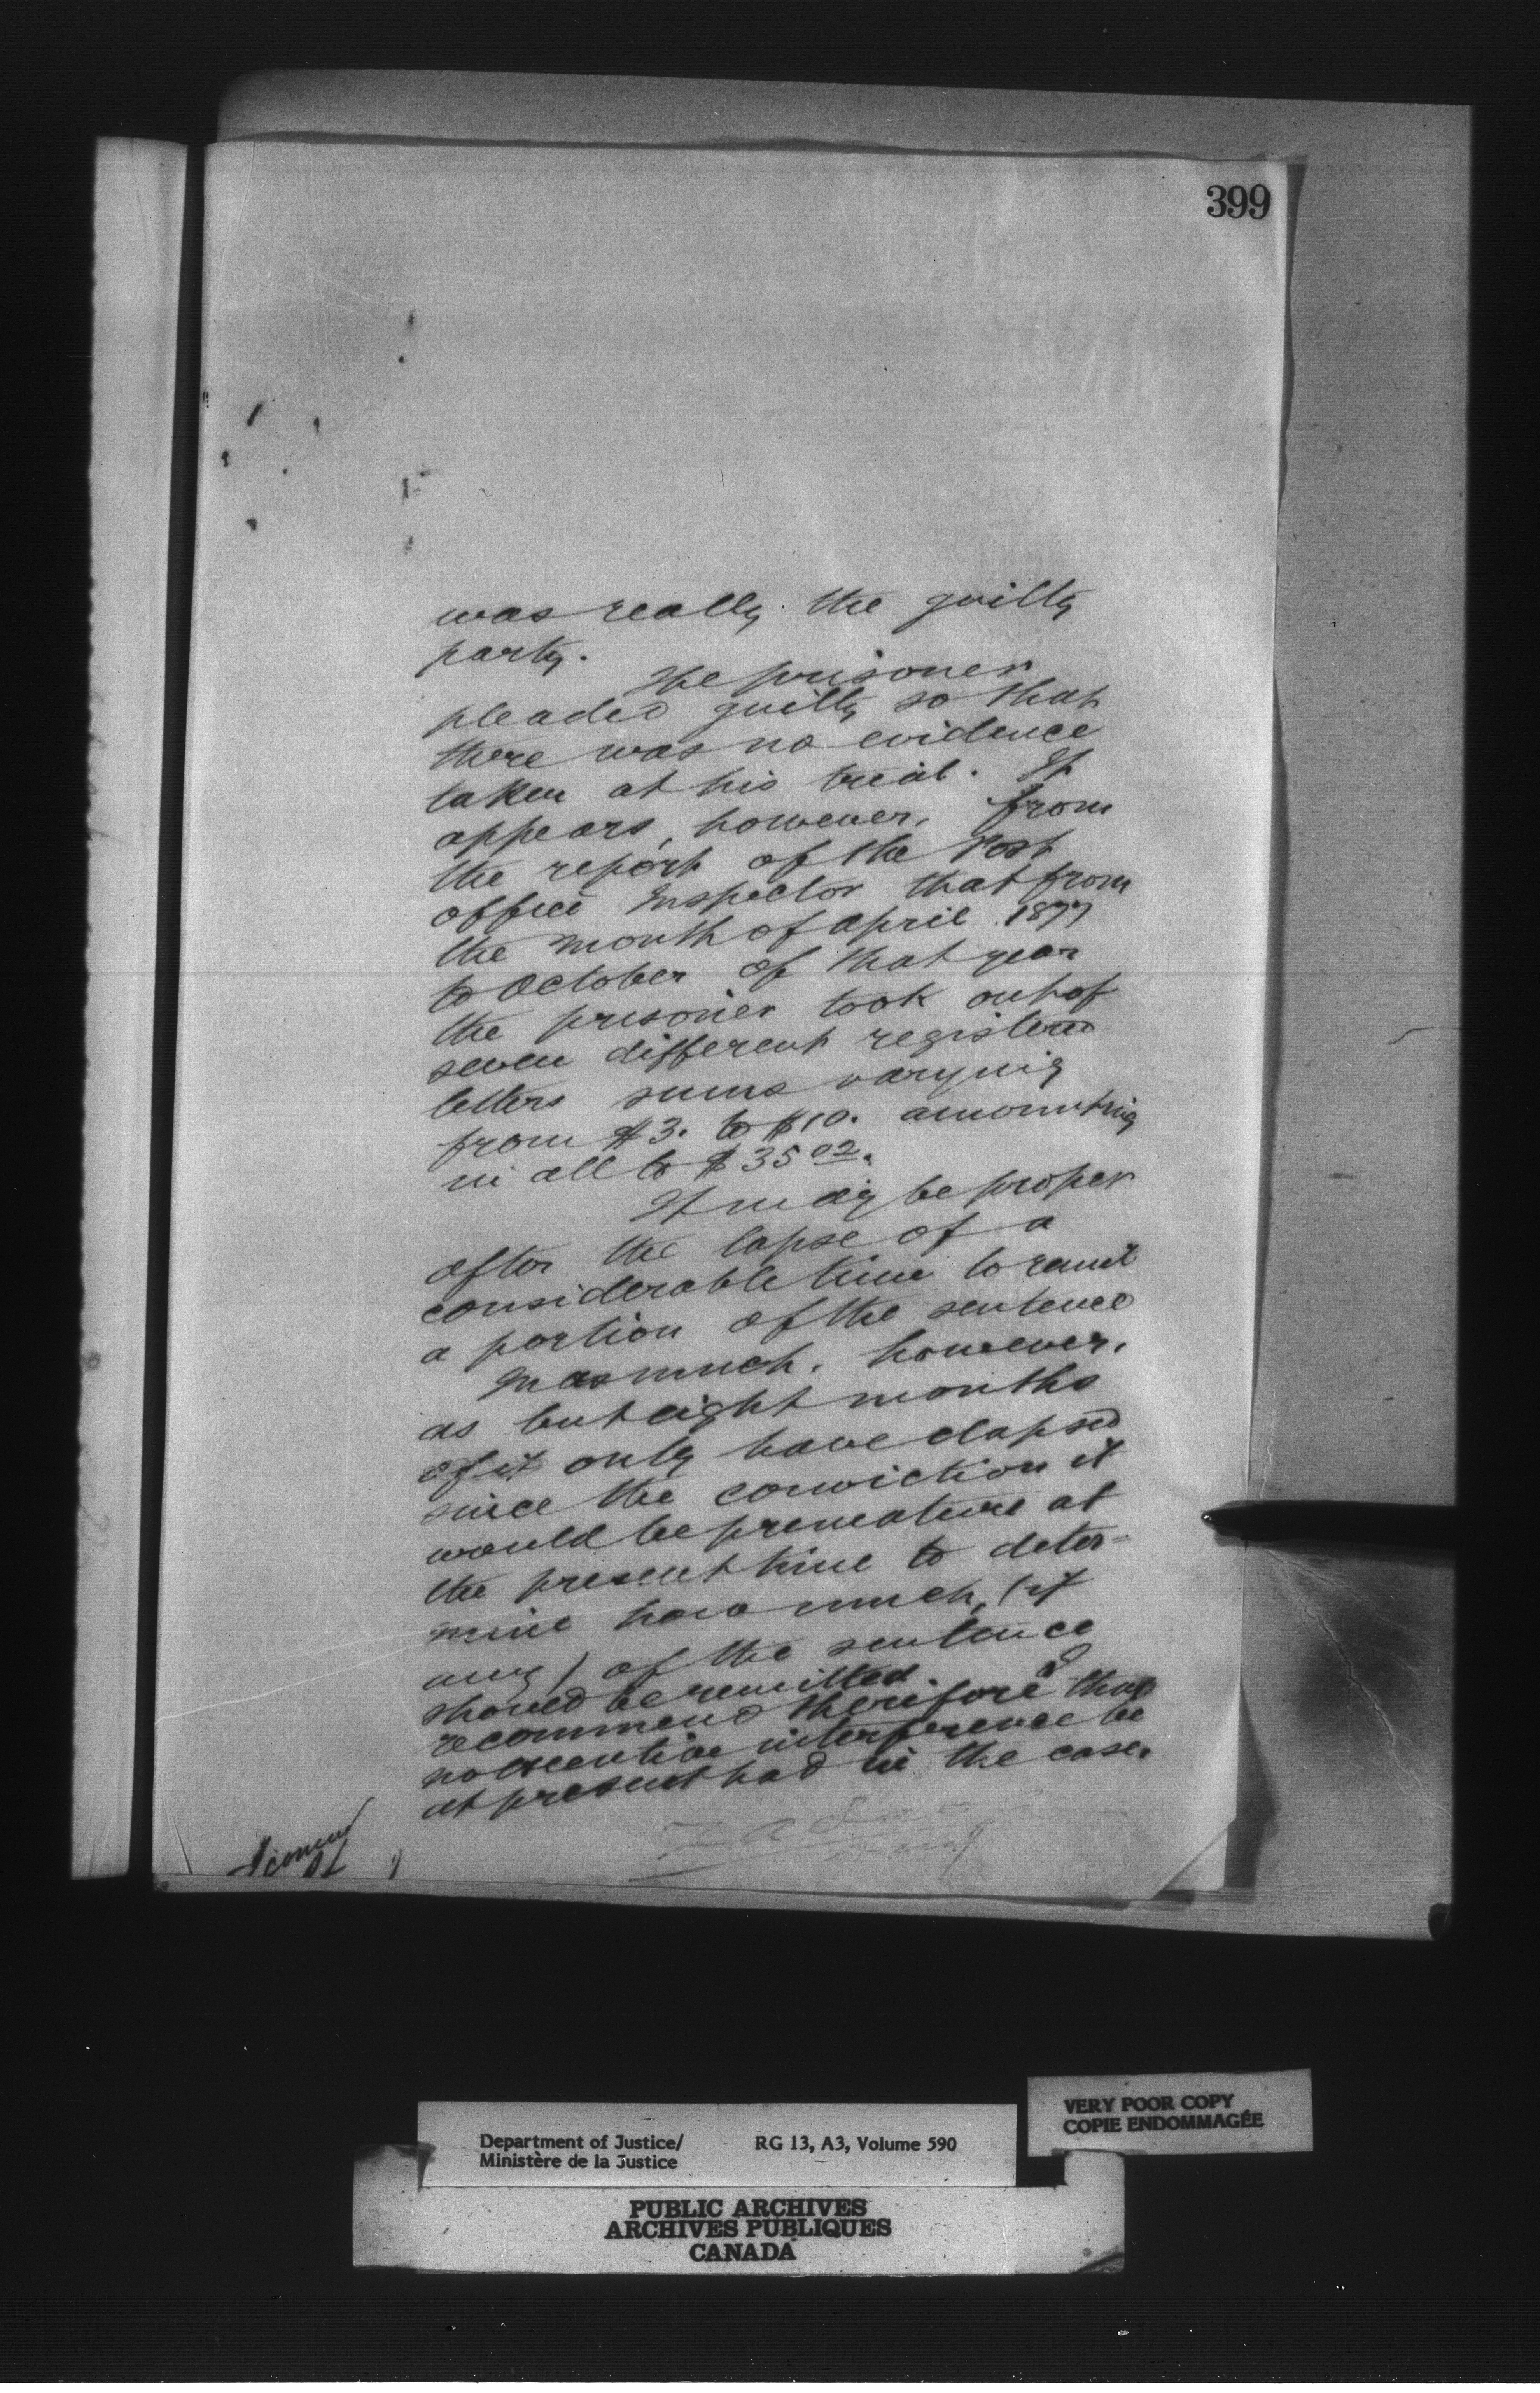 399
was really the guilty
party.
The prisoner
pleaded guilty so that
there was no evidence
taken at his trial. It
appears, however, from
the report of the Post
office Inspector that from
the month of april 1877
to October of that year
the prisoner took out of
seven different registered
letters sums varying
from $3. to $10. amounting
in all to $35 02.
It may be proper
after the lapse of a
considerable time to remit
a portion of the sentence
Inasmuch, however,
as but eight months
of it only have elapsed
since the conviction it
would be premature at
the present time to deter-
mine how much, (if
any) of the sentence
should be remitted. I
recommend therefore that
no executive interference be
at present had in the case.
I concur
VERY POOR COPY
COPIE ENDOMMAGÉE
Department of Justice/
Ministère de la Justice
RG 13, A3, Volume 590
PUBLIC ARCHIVES
ARCHIVES PUBLIQUES
CANADA